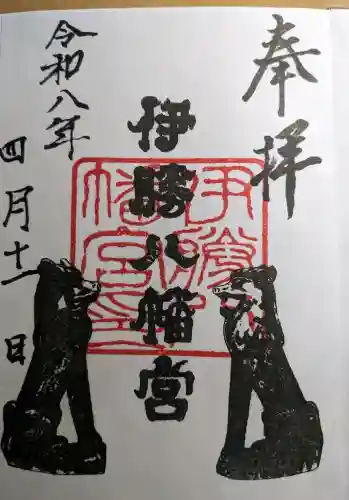 奉拝
伊勝八幡宮
令和八年
四月十一日
伊勝八幡宮印